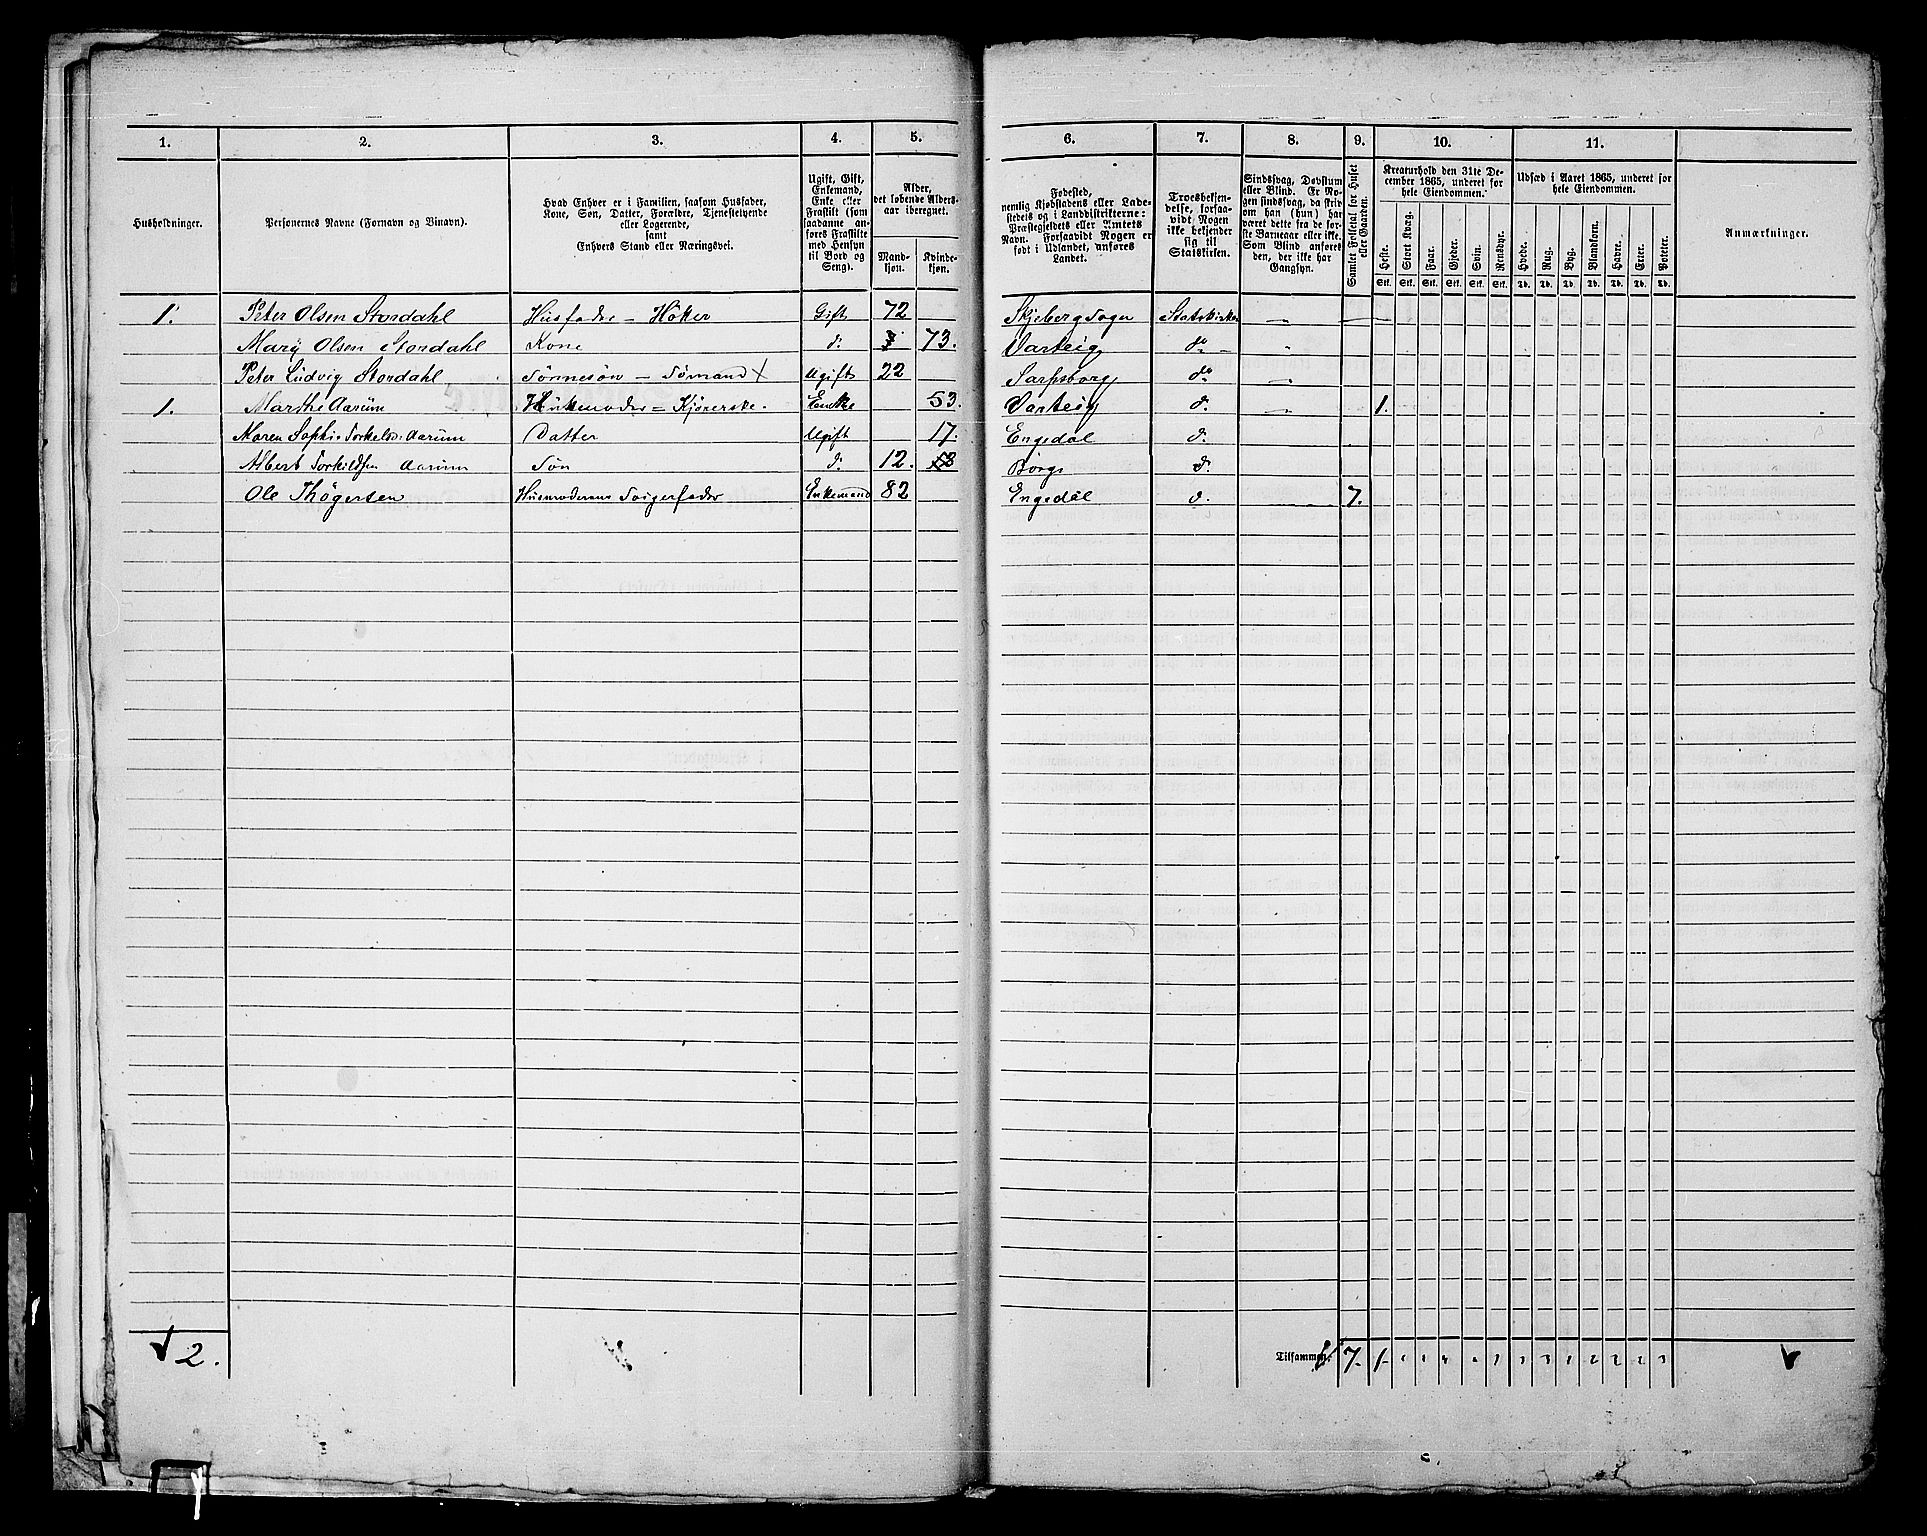 1. 2. 3. 4. 5. 6. 7. 8. 9. 10. 11.
Husholdninger.
Personernes Navne (Fornavn og Binavn).
Hvad Enhver er i Familien, saasom Husfader,
Kone, Søn, Datter, Forældre, Tjenestetyende
eller Logerende,
samt
Enhvers Stand eller Næringsvei.
Ugift, Gift,
Enkemand,
Enke eller
Fraskilt (som
saadanne an-
føres Fraskilte
med Hensyn
til Bord og
Seng).
Alder,
det løbende Alders-
aar iberegnet.
Mand-
kjøn.
Kvinde-
kjøn.
Fødested,
nemlig Kjøbstadens eller Lade-
stedets og i Landdistrikterne:
Præstegjeldets eller Amtets
Navn. Forsaavidt Nogen er
født i Udlandet, anføres
Landet.
Troesbekjen-
delse, forsaa-
vidt Nogen
ikke bekjender
sig til
Statskirken.
Sindssvag, Døvstum
eller Blind. Er No-
gen sindssvag, da skriv
om han (hun) har
været dette fra de før-
ste Barneaar eller ikke.
Som Blind anføres
den, der ikke har
Gangsyn.
Samlet Folketal for Huset
eller Gaarden.
Kreaturhold den 31te De-
cember 1865, underet for
hele Eiendommen.
Heste. Stort Kvæg. Faar. Gjeder. Svin. Rensdyr.
Stk. Stk. Stk. Stk. Stk. Stk.
Udsæd i Aaret 1865, underet for
hele Eiendommen.
Hvede. Rug. Byg. Blandkorn. Havre. Erter. Poteter.
Td. Td. Td. Td. Td. Td. Td.
Anmærkninger.
1. Peter Olsen Stordahl Husfader – Høker Gift 72 Skjeberg Sogn Statskirken
Mary Olsen Stordahl Kone do 73. Varteig do
Peter Ludvig Stordahl Sønnesøn – Sømand X Ugift 22 Sarpsborg do
1. Marthe Aarum Kjørerske. Enke 53. Varteig d. 1.
Maren Sophie Torkelsd: Aarum Datter Ugift 17. Engedal d.
Albert Torkildsen Aarum Søn d: 12. Borge d.
Ole Thøgersen Husmoderens Svigerfader Enkemand 82 Engedal d. 7.
2.
Tilsammen: 7. 1.